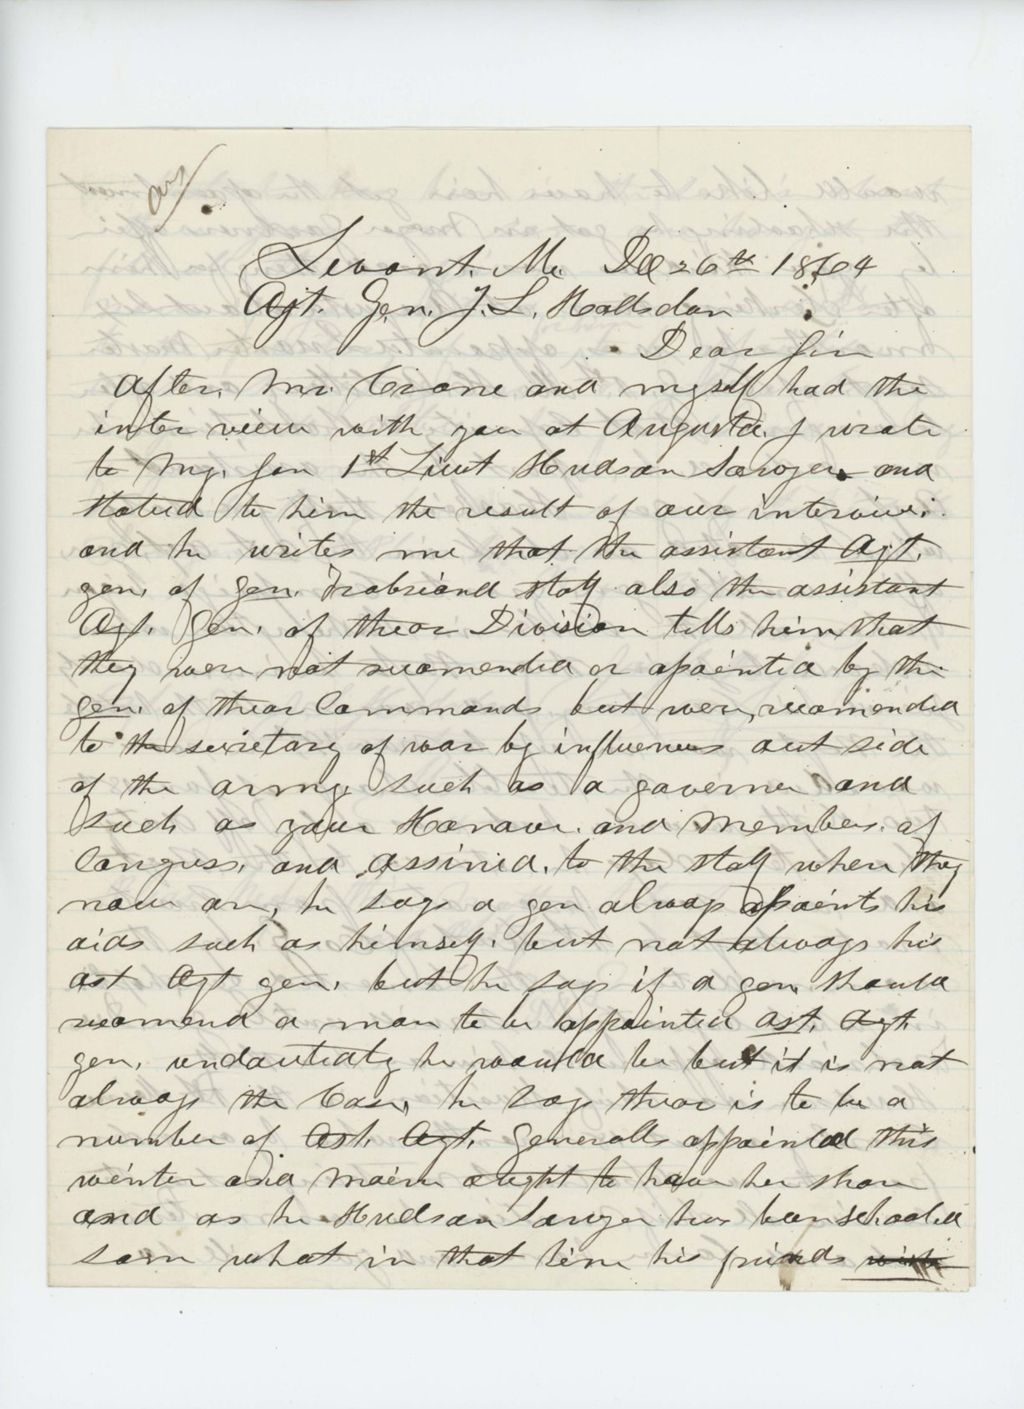 ans
Levant. Me. Dec 26th 1864
Ajt. Gen. J. L. Hodsdon
Dear Sir
After. Mr. Crane and myself had the
inter view with you at Augusta. I wrote
to My. Son 1st Lieut Hudson Sawyer. and
stated to him the result of our interview.
and he writes me that the assistant Ajt.
gen. of gen. staff also the assistant
Ajt. Gen. of thear Division tells him that
they were not recomended or apointed by the
gen. of thear Commands but were, recomended
to the secretary of war by influences out side
of the army such as a governer and
such as your Honour. and Members. of
Congress. and assined. to the staff where they
now are, he says a gen always apoints his
aids such as himself. but not always his
ast Ajt gen. but he says if a gen. should
recomend a man to be appointed ast. Ajt.
gen. undoutedly he would be but it is not
always the Case, he says thear is to be a
number of Ast. Ajt. Generalls appointed this
winter and Maine ought to have her share
and as he Hudson Sawyer has ben schooled
som what in that line his friends wish